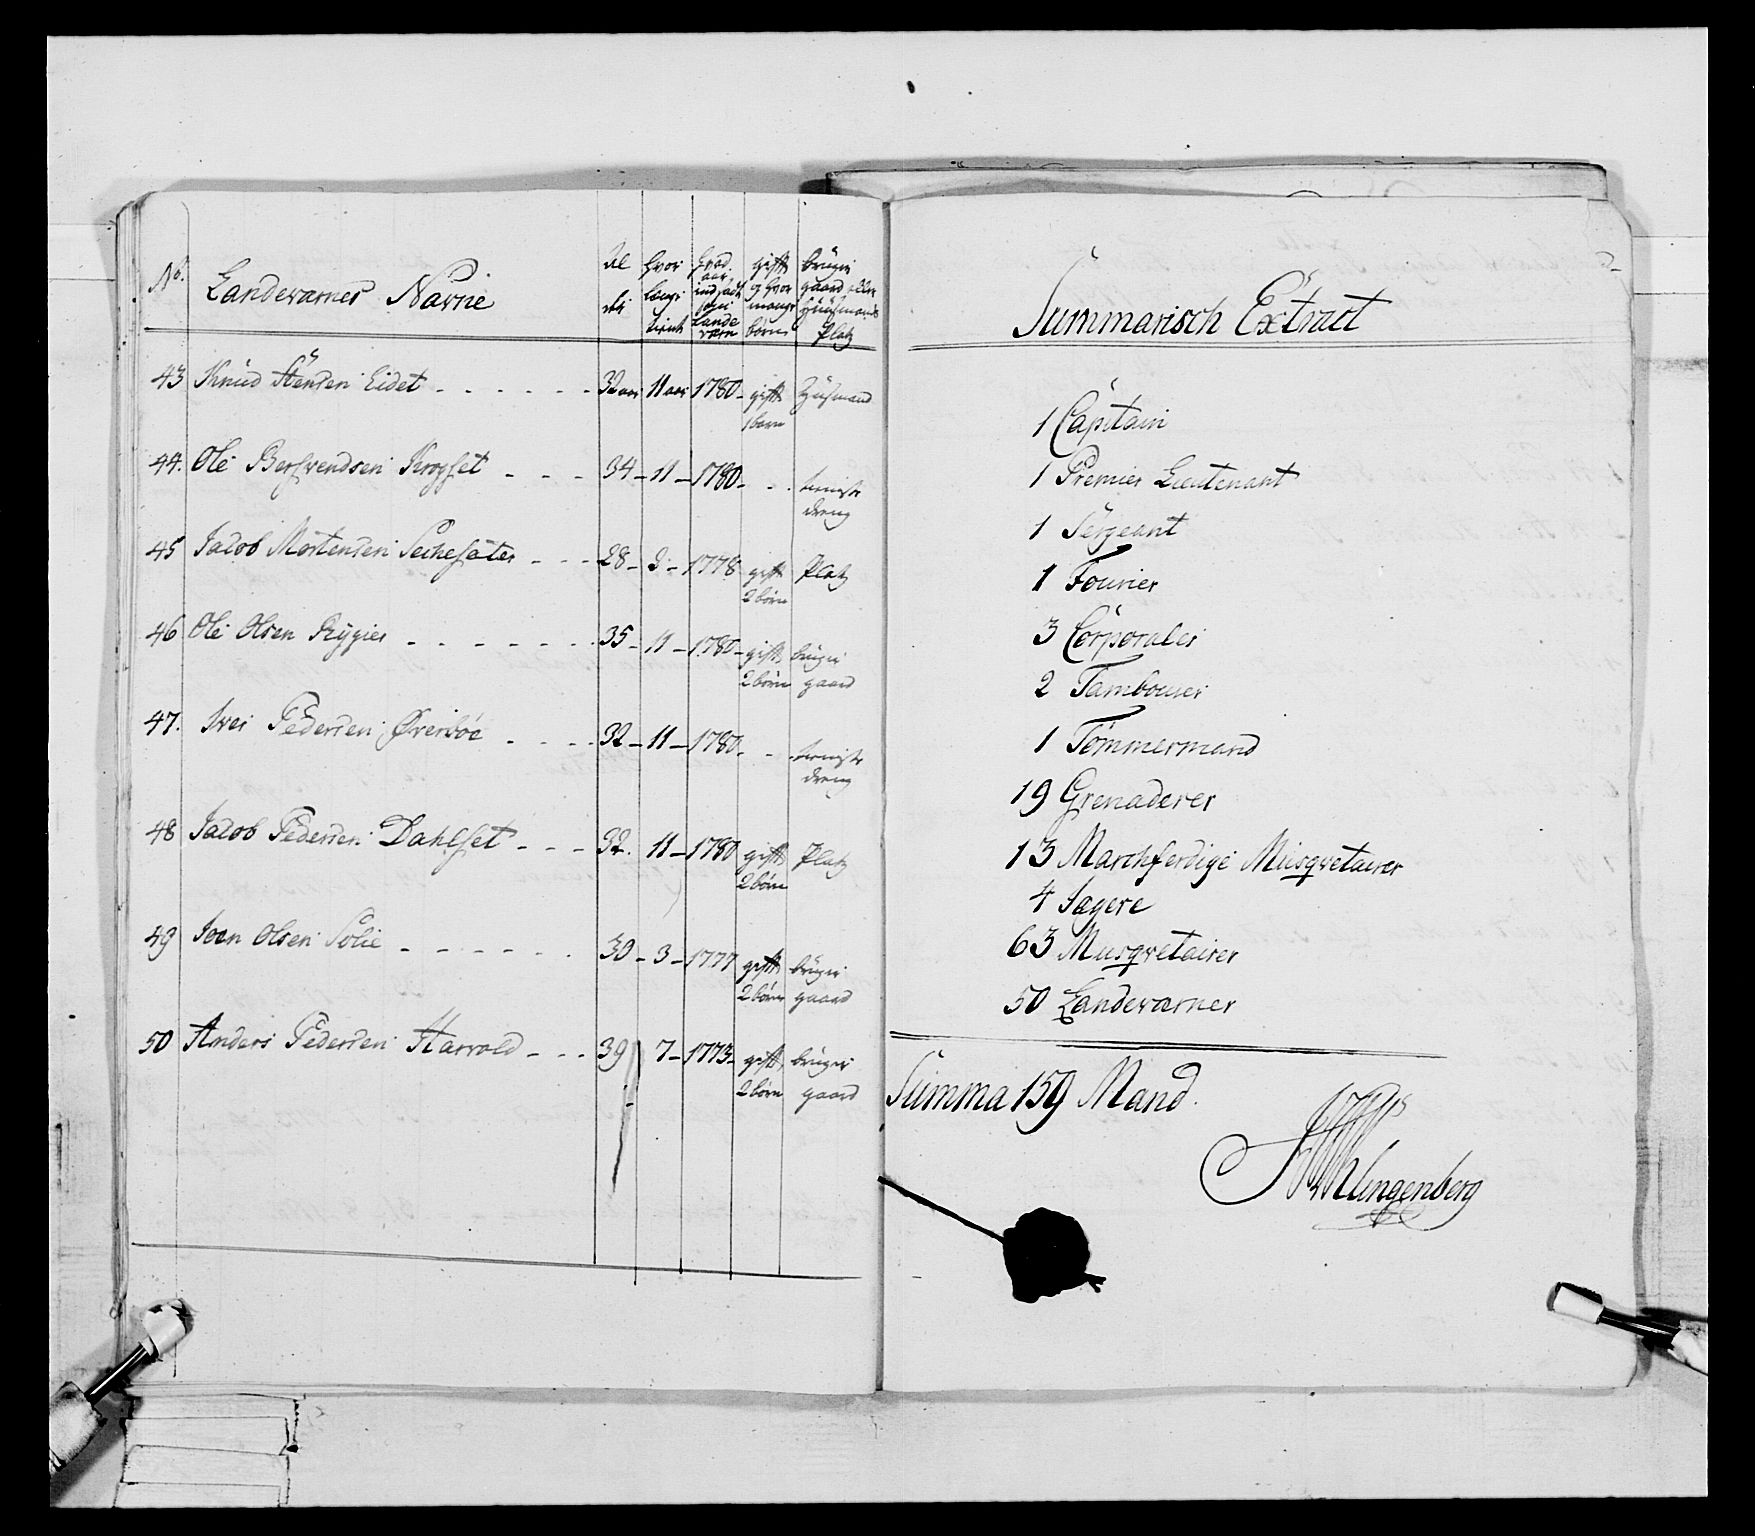 No. Landeværnes Navne
Al der
hvor længe tient
hvad aar indsadt i Lande værn
gift og hvor mange børn
bruger gaard eller Huusmands Platz
43 Knud Stensen Eidet - - - - - - 32 aar 11 aar 1780 - gift 1 barn Huusmand
44. Ole Bersvendsen Krogset - - - 34 - 11 - 1780 - - . tieniste dreng
45 Jacob Mortensen - - - 28 - 2 - 1778 gift 2 børn Platz
46 Ole Olsen Rygier - - - - - - 35 - 11 - 1780 - gift 2 børn bruger gaard
47. Iver Pedersen Øverbøe - - - - 32 - 11 - 1780 - - . tieniste dreng
48 Jacob Pedersen Dahlset - - - 32. 11 - 1780 gift 2 børn Platz
49 Joen Olsen Solie - - - - - - 30 - 3 - 1777 gift 2 børn bruger gaard
50 Anders Pedersen Harvold - - - 39 7 - 1773 - gift 2 børn bruger gaard
Summarisch Extract
1 Capitain
1 Premier Lieutenant
1 Sergeant
1 Fourier
3 Corporaler
2 Tambourer
1 Tømmermand
19 Grenaderer
13 Marchferdige Musqvetairer
4 Jægere
63 Musqvetairer
50 Landeværner
Summa 159 Mand.
Klingenberg